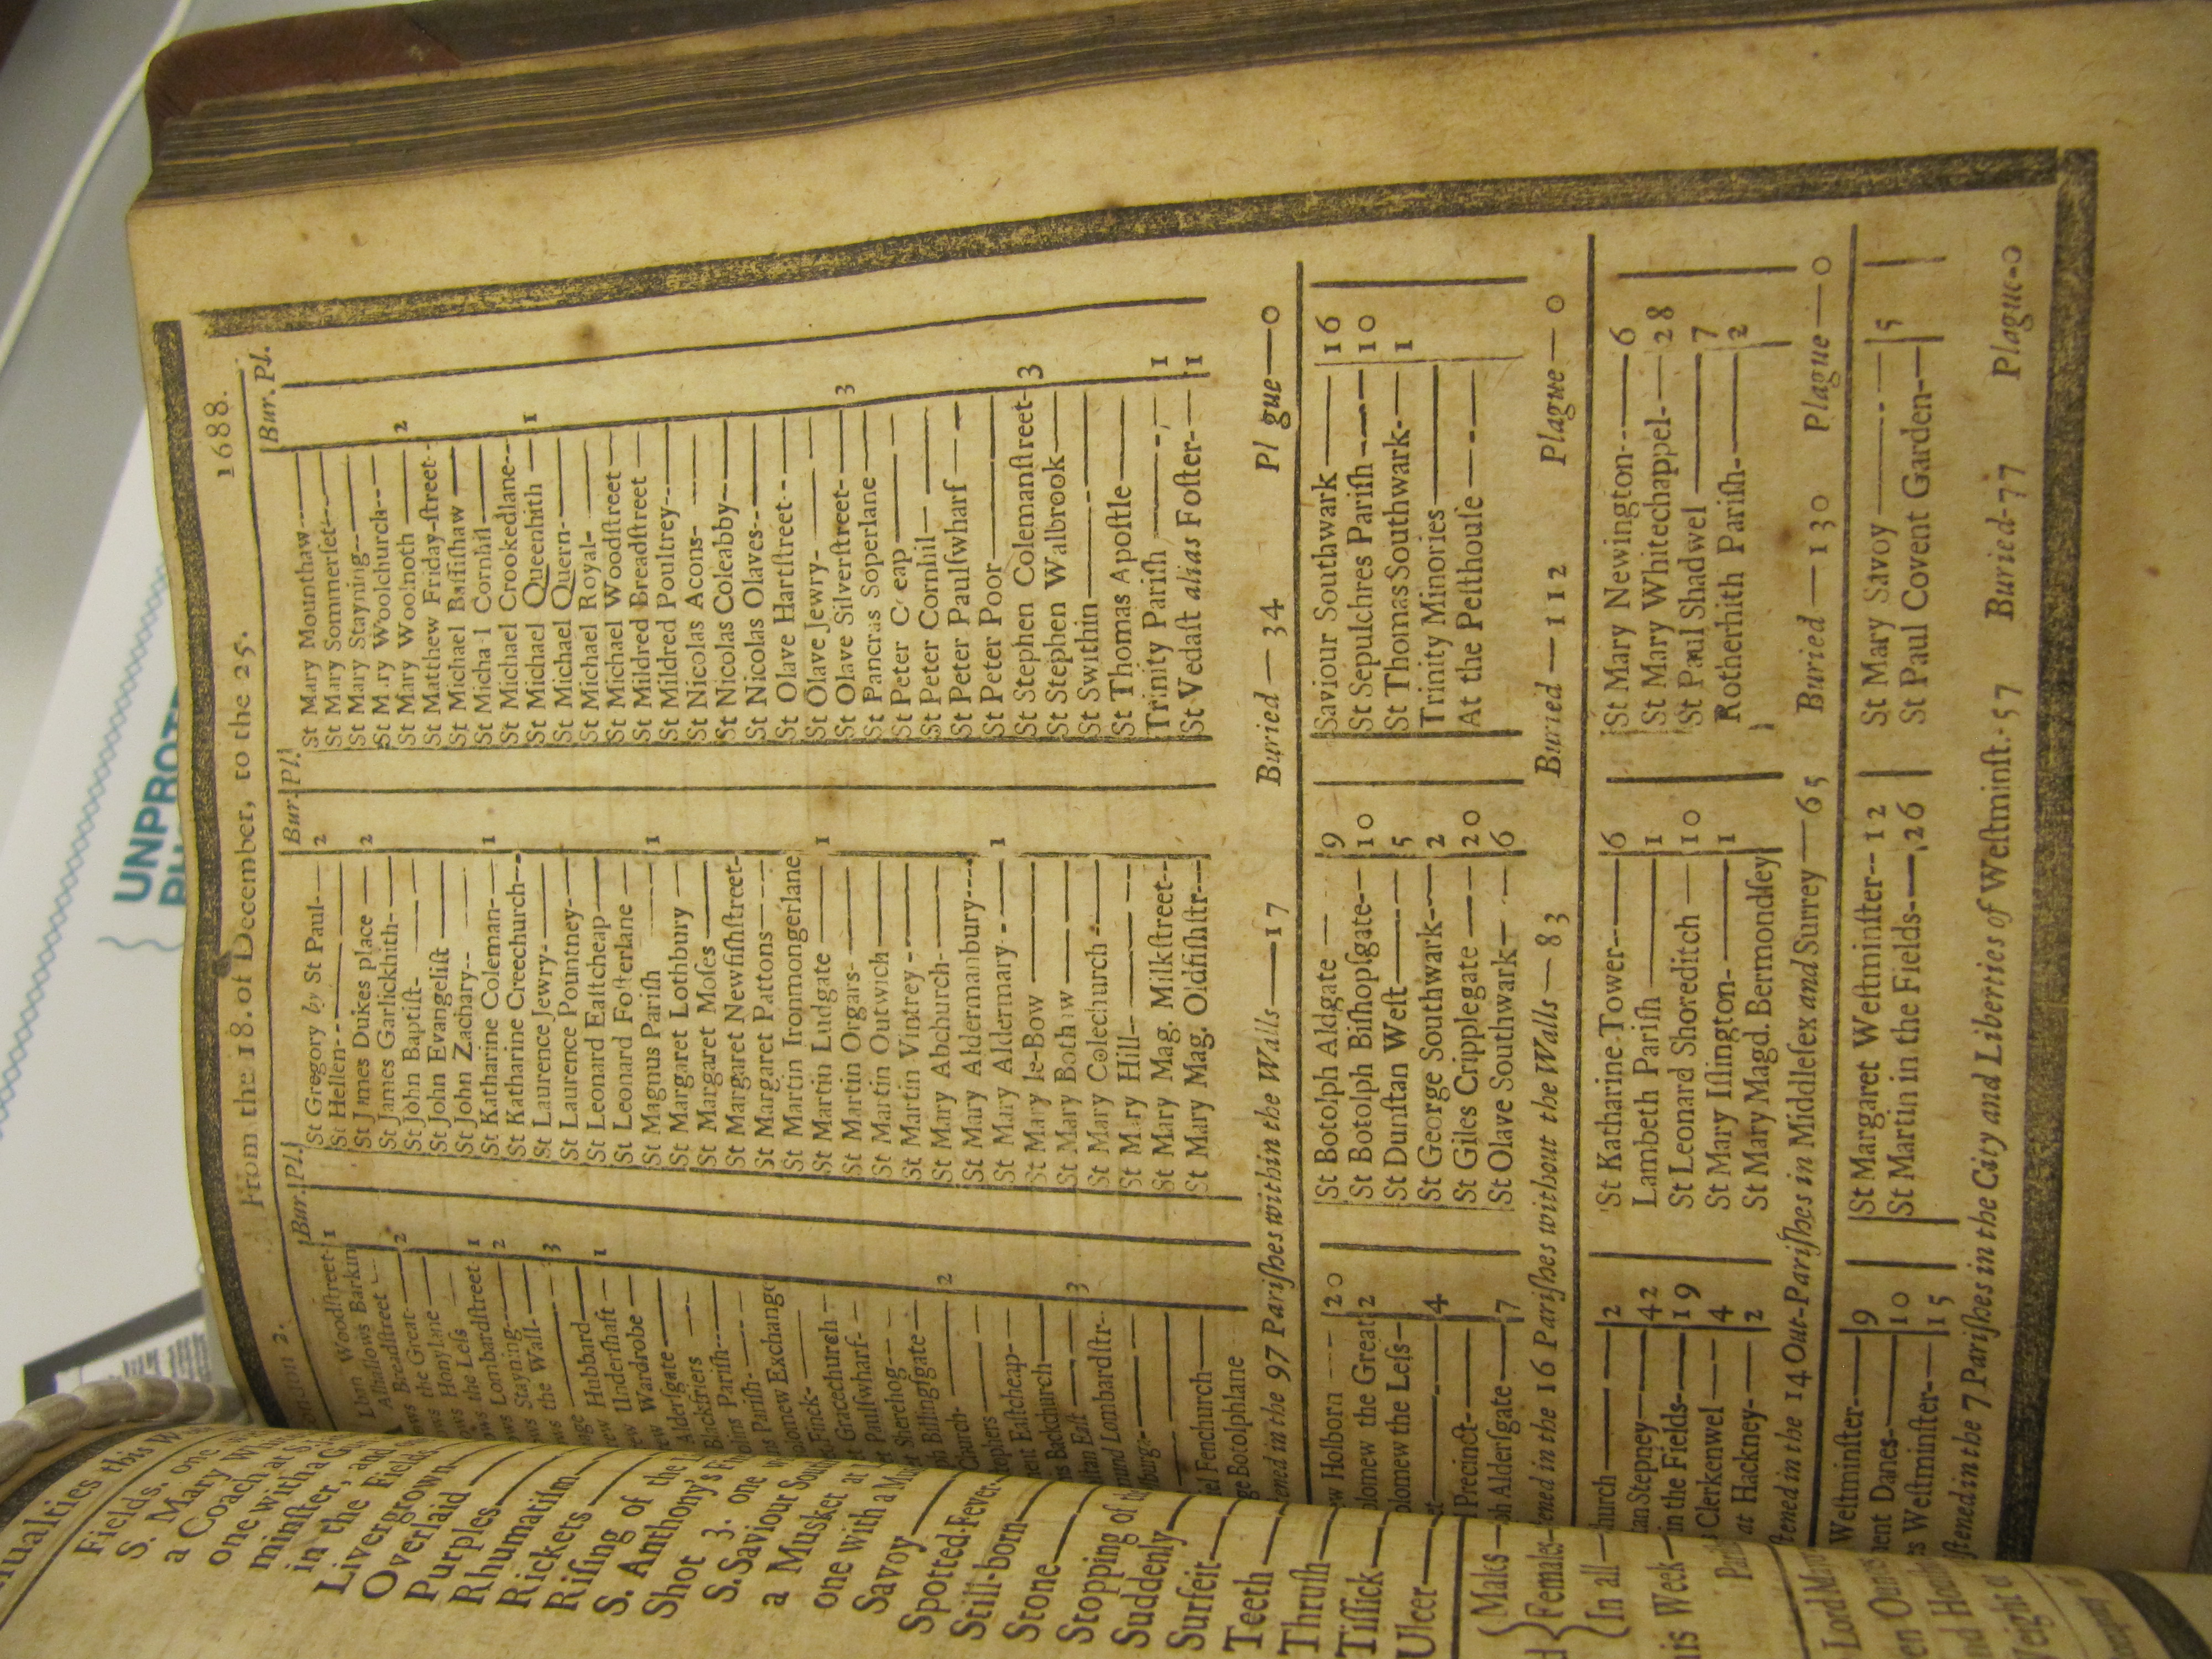 London 2. From the 18. of December, to the 25. 1688.
Bur. Pl. Bur. Pl. Bur. Pl.
Woodſtreet- 1
Alhallows Barkin
Breadſtreet
the Great 2
Honylane
the Leſs
Lombardſtreet 1
Stayning 2
the Wall- 3
Hubbard 1
Underſhaft
Wardrobe
Alderſgate
Blackfriers
Pariſh
Pariſh-
Exchange
Finck-
Gracechurch
Paulſwharf
Sherehog
Billingſgate
Church- 2
Eaſtcheap
Backchurch
Eaſt 3
Lombardſtr-
Fenchurch
Botolphlane
St Gregory by St Paul 2
St Hellen
St James Dukes place 2
St James Garlickhith
St John Baptiſt-
St John Evangeliſt
St John Zachary
St Katharine Coleman 1
St Katharine Creechurch
St Laurence Jewry
St Laurence Pountney
St Leonard Eaſtcheap
St Leonard Foſterlane
St Magnus Pariſh 1
St Margaret Lothbury
St Margaret Moſes
St Margaret Newfiſhſtreet
St Margaret Pattons
St Martin Ironmongerlane
St Martin Ludgate 1
St Martin Orgars
St Martin Outwich
St Martin Vintrey
St Mary Abchurch
St Mary Aldermanbury
St Mary Aldermary 1
St Mary le-Bow
St Mary Both w
St Mary Colechurch
St Mary Hill
St Mary Mag. Milkſtreet
St Mary Mag. Oldfiſhſtr
St Mary Mounthaw
St Mary Sommerſet
St Mary Stayning
St M ry Woolchurch
St Mary Woolnoth 2
St Matthew Friday-ſtreet
St Michael Baſſiſhaw
St Micha l Cornhil
St Michael Crookedlane
St Michael Queenhith 1
St Michael Quern
St Michael Royal
St Michael Woodſtreet
St Mildred Breadſtreet
St Mildred Poultrey
St Nicolas Acons
St Nicolas Coleabby
St Nicolas Olaves
St Olave Hartſtreet
St Olave Jewry
St Olave Silverſtreet 3
St Pancras Soperlane
St Peter C eap
St Peter Cornhil
St Peter Paulſwharf
St Peter Poor
St Stephen Colemanſtreet 3
St Stephen Walbrook
St Swithin
St Thomas Apoſtle
Trinity Pariſh 1
St Vedaſt alias Foſter 1
in the 97 Pariſhes within the Walls—17 Buried—34 Pl gue—0
Holborn 20
the Great 2
the Leſs
4
Precinct
Alderſgate 7
St Botolph Aldgate 9
St Botolph Biſhopſgate 10
St Dunſtan Weſt 5
St George Southwark 2
St Giles Cripplegate 20
St Olave Southwark 6
Saviour Southwark 16
St Sepulchres Pariſh 10
St Thomas Southwark 1
Trinity Minories
At the Peſthouſe
in the 16 Pariſhes without the Walls—83 Buried—112 Plague—0
2
Stepney 42
in the Fields 19
Clerkenwel 4
at Hackney 2
St Katharine Tower 6
Lambeth Pariſh 1
St Leonard Shoreditch 10
St Mary Iſlington 1
St Mary Magd. Bermondſey
St Mary Newington 6
St Mary Whitechappel 28
St Paul Shadwel 7
Rotherhith Pariſh 2
in the 14 Out-Pariſhes in Middleſex and Surrey—65 Buried—130 Plague—0
Weſtminſter 9
Danes 10
Weſtminſter 15
St Margaret Weſtminſter 12
St Martin in the Fields 26
St Mary Savoy
St Paul Covent Garden 5
in the 7 Pariſhes in the City and Liberties of Weſtminſt. 57 Buried-77 Plague-0
this
Fields, one
S. Mary
a Coach at
one with a
minſter, and
in the Fields
Livergrown
Overlaid
Purples
Rhumatiſm
Rickets
Riſing of the
S. Anthony's
Shot 3. one
S. Saviour
a Musket at
one with a
Savoy
Spotted-Fever
Still-born
Stone
Stopping of
Suddenly
Surfeit
Teeth
Thruſh
Tiſſick
Ulcer
Males
Females
In all
Week
UNPROT